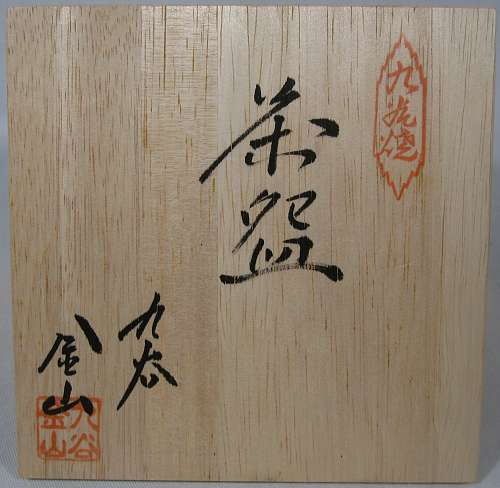 九谷焼
茶盌
九谷
金山
九谷
金山